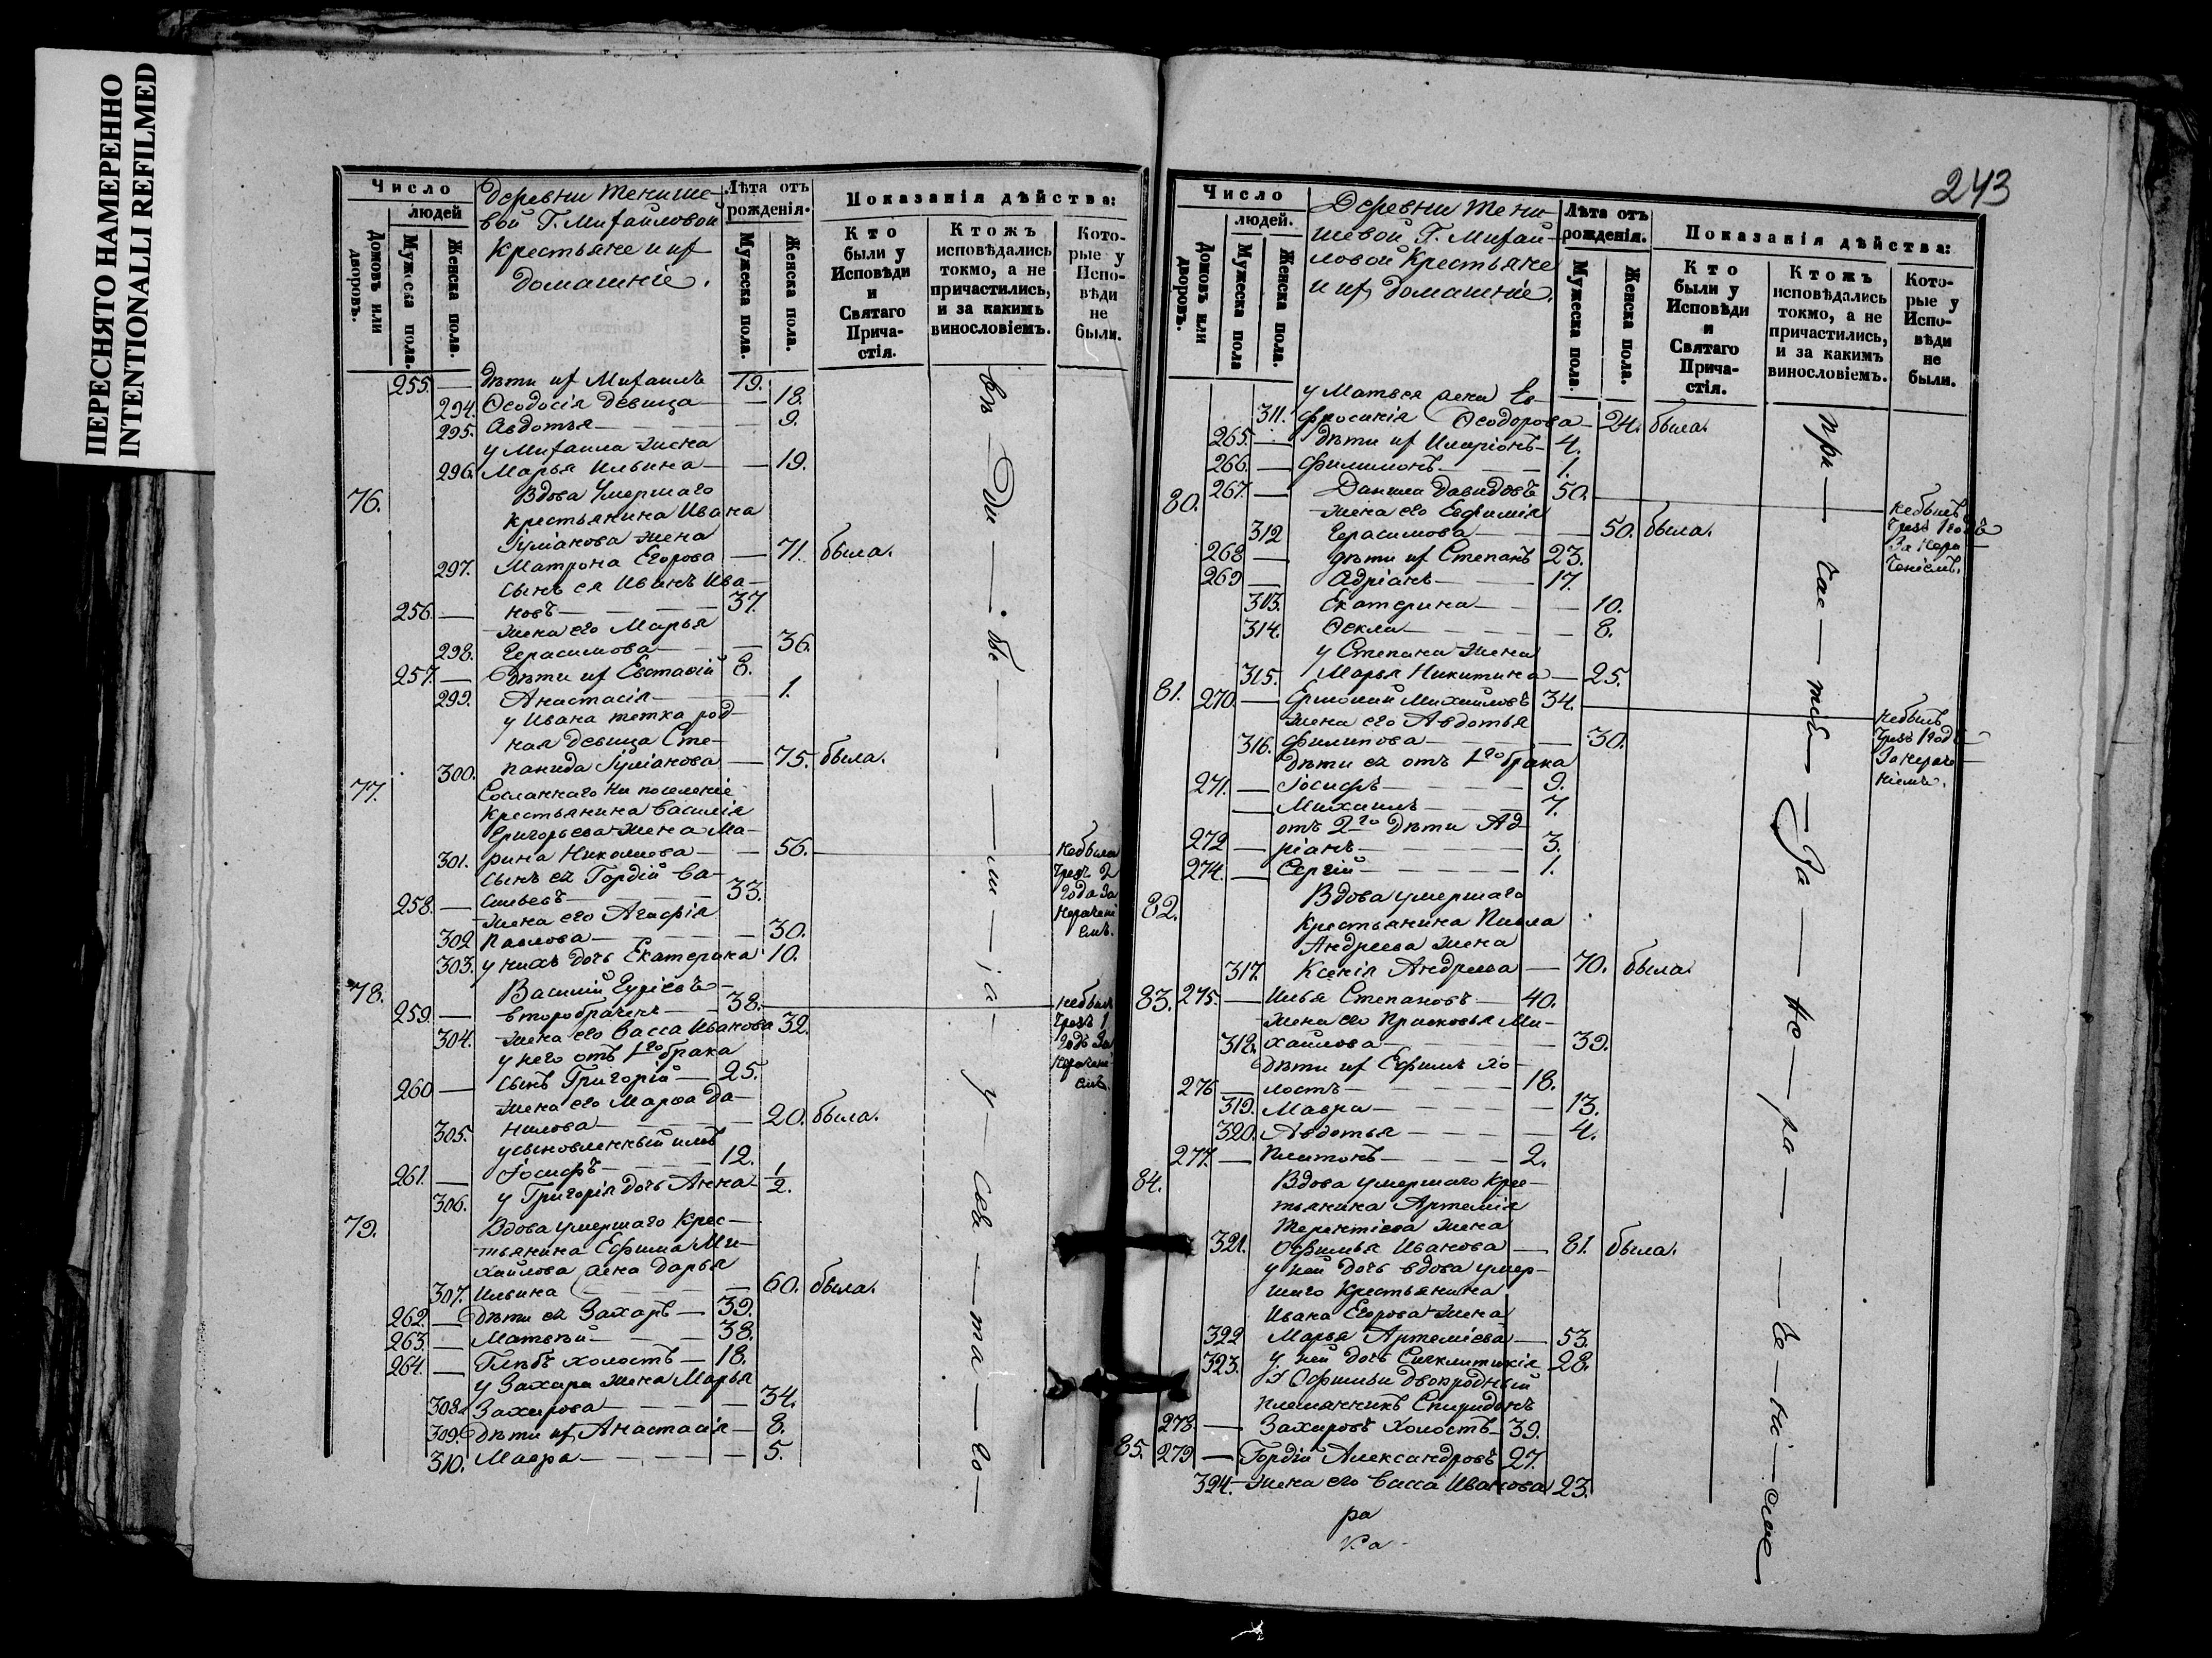 ПЕРЕСНЯТО НАМЕРЕННО
INTENTIONALLI REFILMED
Число
людей
Домовъ или дворовъ.
Мужеска пола.
Женска пола.
Деревни Тенише-
вой Г. Михайловой
Крестьяне и их
домашніе.
Лѣта отъ
рожденія.
Мужеска пола.
Женска пола.
Показанія дѣйства:
Кто
были у
Исповѣди
и
Святаго
Прича-
стія.
Ктожъ
исповѣдались
токмо, а не
причастились,
и за какимъ
винословіемъ.
Кото-
рые у
Испо-
вѣди
не
были.
255. — дѣти их Михаилъ 19.
294. Ѳеодосія девица — — 18.
295. Авдотья — — — 9.
у Михаила жена
296. Марья Ильина — — 19.
76. Вдова умершаго
крестьянина Ивана
Гуліанова жена
297. Матрона Егорова — 71. была.
сынъ ея Иванъ Ива-
256. — новъ — — — — 37.
жена его Марья
298. Герасимова — — 36.
257. — Дѣти их Евстафій 8.
299. Анастасія — — — 1.
у Ивана тетка род-
ная девица Сте-
300. панида Гуліанова — 75. была.
77. Сосланнаго на поселеніе
Крестьянина Василія
Григорьева жена Ма-
301. рина Николаева — — 56. — небыла
сынъ ея Гордій Ва- чрезъ 2
258. — сильевъ — — — 33. года за
жена его Агафія нерачені
302 Павлова — — — 30. емъ.
303. у нихъ дочь Екатерина 10.
78. Василій Гуріевъ —
259. — второбраченъ — 38. — небылъ
304. жена его Васса Иванова 32. чрезъ 1
у него отъ 1го брака годъ за
260 — сынъ Григорій — 25. нерачені
жена его Марѳа Да- емъ.
305. нилова — — — 20. была.
усыновленный имъ
261. — Іосифъ — — — 12.
306. у Григорія дочь Анна 1/2.
79. Вдова умершаго Крес-
тьянина Ефима Ми-
хайлова жена Дарья
307. Ильина — — — 60. была.
262. — Дѣти ея Захаръ — 39.
263. — Матвѣй — — — 38.
264. — Глѣбъ холостъ — 18.
у Захара жена Марья
308. Захарова — — — 34.
309. Дѣти их Анастасія — 8.
310. Мавра — — — — 5.
243
Число
людей.
Домовъ или дворовъ.
Мужеска пола
Женска пола.
Деревни Тени-
шевой Г. Михай-
ловой Крестьяне
и их домашніе.
Лѣта отъ
рожденія.
Мужеска пола.
Женска пола.
Показанія дѣйства:
Кто
были у
Исповѣди
и
Святаго
Прича-
стія.
Ктожъ
исповѣдались
токмо, а не
причастились,
и за какимъ
винословіемъ.
Кото-
рые у
Испо-
вѣди
не
были.
у Матвея жена Ев-
311. фросинія Ѳеодорова — 24. была.
265. — дѣти их Иларіонъ — 4.
266. — Филимонъ — — 1.
80. 267. — Данила Давидовъ 50. — небылъ
жена его Евфимія чрезъ 1 годъ
312 Герасимова — — 50. была. за нера-
268 — дѣти их Степанъ 23. ченіемъ.
269 — Адріанъ — — 17.
313. Екатерина — — 10.
314. Ѳекла — — — — 8.
у Степана жена
315. Марья Никитина — 25.
81. 270. — Ермолай Михайловъ 34. — небылъ
жена его Авдотья чрезъ 1 годъ
316. Филипова — — — 30. за нераче-
дѣти ея отъ 1го брака ніемъ.
271. — Іосифъ — — — — 9.
— Михаилъ — — — 7.
отъ 2го дѣти Ад-
272 — ріанъ — — — — 3.
274. — Сергій — — — — 1.
82. Вдова умершаго
крестьянина Павла
Андреева жена
317. Ксенія Андреева — 70. была.
83. 275. — Илья Степановъ — 40.
жена его Прасковья Ми-
318. хайлова — — — — 39.
дѣти их Ефимъ хо-
276 — лостъ — — — 18.
319. Мавра — — — — 13.
320. Авдотья — — — — 4.
277. — Платонъ — — — 2.
84. Вдова умершаго Крес-
тьянина Артемія
Терентіева жена
321. Офимья Иванова — 81. была.
у ней дочь вдова умер-
шаго Крестьянина
Ивана Егорова жена
322 Марья Артеміева — 53.
323. у ней дочь Синклитикія 28.
У Офимьи двопродный
племянникъ Спиридонъ
278. — Захаровъ холостъ — 39.
85. 279 — Гордій Александровъ 27.
324. — жена его Васса Иванова 23.
ра
ка